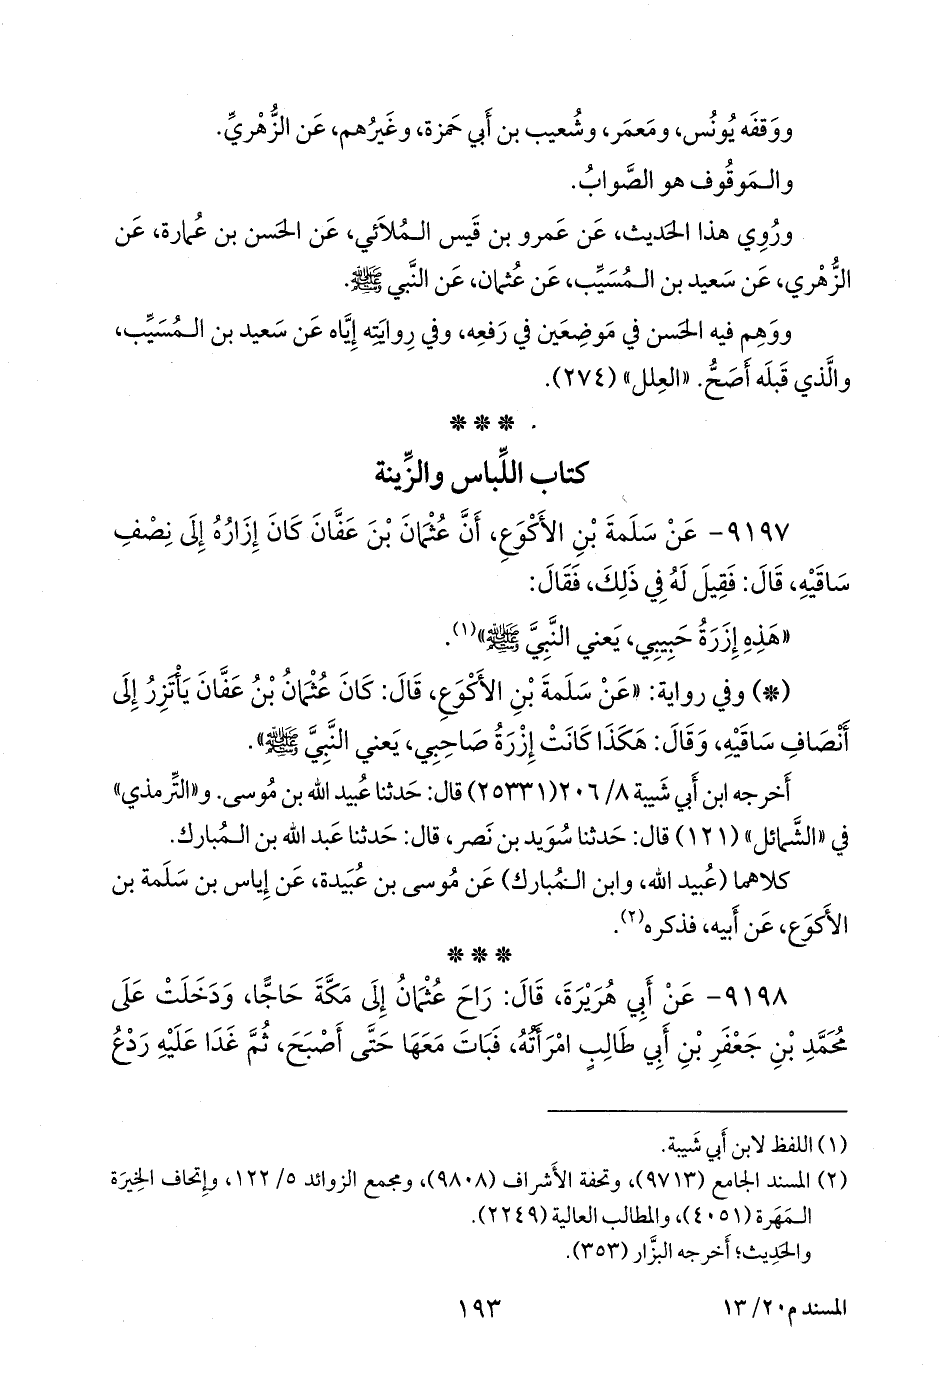 ووَقفَه يُونُس، ومَعمَر، وشُعيب بن أَبي حَمزة، وغَيرُهم، عَن الزُّهْريِّ.
والـمَوقُوف هو الصَّوابُ.
ورُوِي هذا الحَديث، عَن عَمرو بن قَيس الـمُلاَئي، عَن الحَسن بن عُمارة، عَن
الزُّهْري، عَن سَعيد بن الـمُسَيِّب، عَن عُثمان، عَن النَّبي ﷺ.
ووَهِم فيه الحَسن في مَوضِعَين في رَفعِه، وفي رِوايَتِه إِيَّاه عَن سَعيد بن الـمُسَيِّب،
والَّذي قَبلَه أَصَحُّ. «العِلل» (٢٧٤).
* * *
كتاب اللِّباس والزِّينة
٩١٩٧- عَنْ سَلَمةَ بْنِ الأَكْوَعِ، أَنَّ عُثْمَانَ بْنَ عَفَّانَ كَانَ إِزَارُهُ إِلَى نِصْفِ
سَاقَيْهِ، قَالَ: فَقِيلَ لَهُ فِي ذَلِكَ، فَقَالَ:
«هَذِهِ إِزَرَةُ حَبِيبِي، يَعني النَّبِيَّ ﷺ»(١).
(*) وفي رواية: «عَنْ سَلَمةَ بْنِ الأَكْوَعِ، قَالَ: كَانَ عُثْمَانُ بْنُ عَفَّانَ يَأْتَزِرُ إِلَى
أَنْصَافِ سَاقَيْهِ، وَقَالَ: هَكَذَا كَانَتْ إِزْرَةُ صَاحِبِي، يَعني النَّبِيَّ ﷺ».
أَخرجه ابن أَبي شَيبة ٨/ ٢٠٦(٢٥٣٣١) قال: حَدثنا عُبيد الله بن مُوسى. و«التِّرمذي»
في «الشَّمائل» (١٢١) قال: حَدثنا سُوَيد بن نَصر، قال: حَدثنا عَبد الله بن الـمُبارك.
كلاهما (عُبيد الله، وابن الـمُبارك) عَن مُوسى بن عُبَيدة، عَن إِياس بن سَلَمة بن
الأَكوَع، عَن أَبيه، فذكره(٢).
* * *
٩١٩٨- عَنْ أَبِي هُرَيْرَةَ، قَالَ: رَاحَ عُثْمَانُ إِلَى مَكَّةَ حَاجًّا، وَدَخَلَتْ عَلَى
مُحَمَّدِ بْنِ جَعْفَرِ بْنِ أَبِي طَالِبٍ امْرَأَتُهُ، فَبَاتَ مَعَهَا حَتَّى أَصْبَحَ، ثُمَّ غَدَا عَلَيْهِ رَدْعُ
(١) اللفظ لابن أَبي شَيبة.
(٢) المسند الجامع (٩٧١٣)، وتحفة الأشراف (٩٨٠٨)، ومجمع الزوائد ٥/ ١٢٢، وإِتحاف الخِيرَة
الـمَهَرة (٤٠٥١)، والمطالب العالية (٢٢٤٩).
والحَديث؛ أَخرجه البزَّار (٣٥٣).
المسند م٢٠/ ١٣
١٩٣